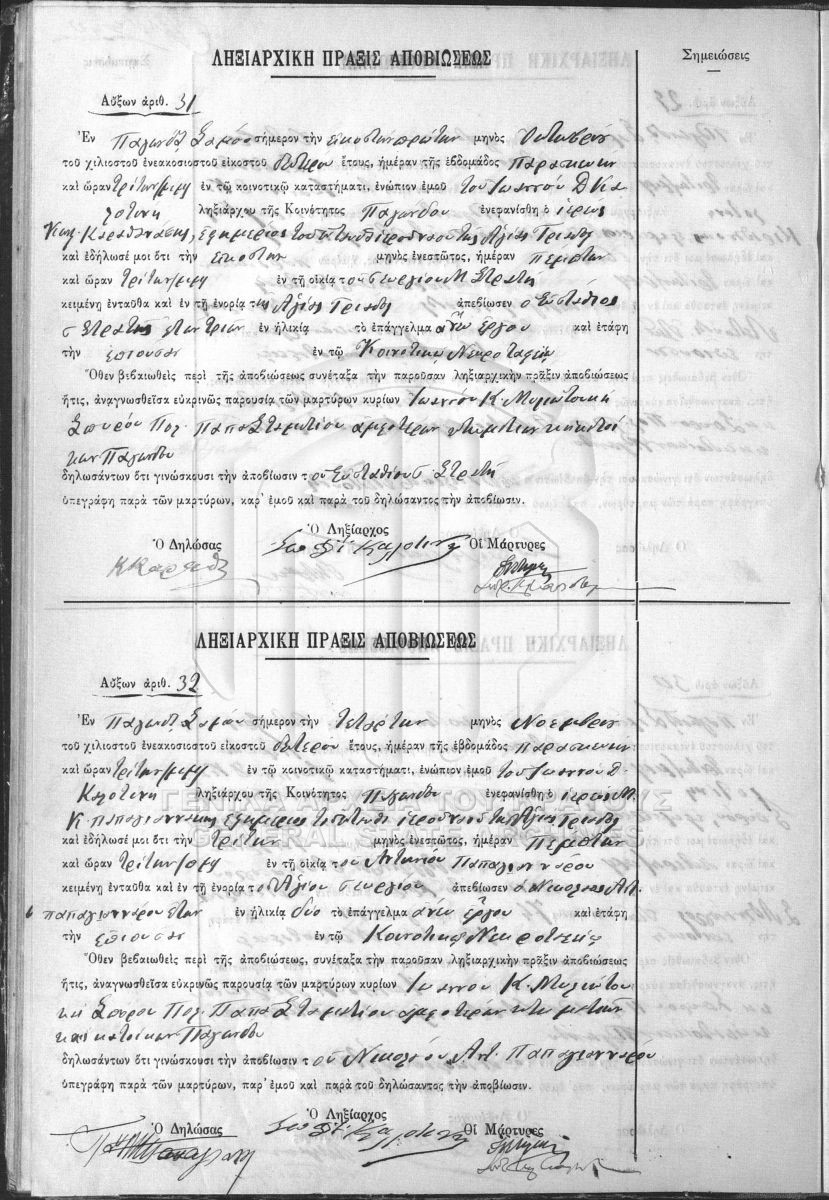 ΛΗΞΙΑΡΧΙΚΗ ΠΡΑΞΙΣ ΑΠΟΒΙΩΣΕΩΣ
Σημειώσεις
Αὔξων ἀριθ. 31
Ἐν Παγώνδᾳ Σάμου σήμερον τὴν εἰκοστὴν πρώτην μηνὸς Ὀκτωβρίου
τοῦ χιλιοστοῦ ἐνεακοσιοστοῦ εἰκοστοῦ δευτέρου ἔτους, ἡμέραν τῆς ἑβδομάδος Παρασκευὴν
καὶ ὥραν τρίτην μμ ἐν τῷ κοινοτικῷ καταστήματι, ἐνώπιον ἐμοῦ τοῦ Ἰωάννου Δ.
ληξιάρχου τῆς Κοινότητος Παγώνδου ἐνεφανίσθη ὁ ἱερεὺς
ἐφημέριος τοῦ τῆς Ἁγίας Τριάδος
καὶ ἐδήλωσέ μοι ὅτι τὴν εἰκοστὴν μηνὸς ἐνεστῶτος, ἡμέραν πέμπτην
καὶ ὥραν τρίτην μμ ἐν τῇ οἰκίᾳ τοῦ Γεωργίου Στρατῆ
κειμένῃ ἐνταῦθα καὶ ἐν τῇ ἐνορίᾳ τῆς Ἁγίας Τριάδος ἀπεβίωσεν ὁ Εὐστάθιος
Γ Στρατῆς ἐτῶν τριῶν ἐν ἡλικίᾳ τὸ ἐπάγγελμα ἄνευ ἔργου καὶ ἐτάφη
τὴν ἐπιοῦσαν ἐν τῷ Κοινοτικῷ Νεκροταφείῳ
Ὅθεν βεβαιωθεὶς περὶ τῆς ἀποβιώσεως συνέταξα τὴν παροῦσαν ληξιαρχικὴν πρᾶξιν ἀποβιώσεως
ἥτις, ἀναγνωσθεῖσα εὐκρινῶς παρουσίᾳ τῶν μαρτύρων κυρίων Ἰωάννου Κ.
Σπύρου Πολ. Παπασταματίου ἀμφοτέρων κτηματιῶν κατοί
κων Παγώνδου
δηλωσάντων ὅτι γινώσκουσι τὴν ἀποβίωσιν τοῦ Εὐσταθίου Γ. Στρατῆ
ὑπεγράφη παρὰ τῶν μαρτύρων, παρ' ἐμοῦ καὶ παρὰ τοῦ δηλώσαντος τὴν ἀποβίωσιν.
Ὁ Δηλώσας
Ὁ Ληξίαρχος
Οἱ Μάρτυρες
ΛΗΞΙΑΡΧΙΚΗ ΠΡΑΞΙΣ ΑΠΟΒΙΩΣΕΩΣ
Αὔξων ἀριθ. 32
Ἐν Παγώνδᾳ Σάμου σήμερον τὴν τετάρτην μηνὸς Νοεμβρίου
τοῦ χιλιοστοῦ ἐνεακοσιοστοῦ εἰκοστοῦ δευτέρου ἔτους, ἡμέραν τῆς ἑβδομάδος παρασκευὴν
καὶ ὥραν τρίτην μμ ἐν τῷ κοινοτικῷ καταστήματι, ἐνώπιον ἐμοῦ τοῦ Ἰωάννου Δ.
ληξιάρχου τῆς Κοινότητος Παγώνδου ἐνεφανίσθη ὁ ἱερεὺς
ἐφημέριος τῆς Ἁγίας Τριάδος
ΓΕΝΙΚΑ ΑΡΧΕΙΑ ΤΟΥ ΚΡΑΤΟΥΣ
GENERAL STATE ARCHIVES
καὶ ἐδήλωσέ μοι ὅτι τὴν τρίτην μηνὸς ἐνεστῶτος, ἡμέραν Πέμπτην
καὶ ὥραν τρίτην ἐν τῇ οἰκίᾳ τοῦ Ἀντωνίου Παπαγιαννάρου
κειμένῃ ἐνταῦθα καὶ ἐν τῇ ἐνορίᾳ τοῦ Ἁγίου Γεωργίου ἀπεβίωσεν ὁ Νικόλαος Ἀντ.
Παπαγιαννάρου ἐτῶν ἐν ἡλικίᾳ δύο τὸ ἐπάγγελμα ἄνευ ἔργου καὶ ἐτάφη
τὴν ἐπιοῦσαν ἐν τῷ Κοινοτικῷ Νεκροταφείῳ
Ὅθεν βεβαιωθεὶς περὶ τῆς ἀποβιώσεως, συνέταξα τὴν παροῦσαν ληξιαρχικὴν πρᾶξιν ἀποβιώσεως
ἥτις, ἀναγνωσθεῖσα εὐκρινῶς παρουσίᾳ τῶν μαρτύρων κυρίων Ἰωάννου Κ.
καὶ Σπύρου Πολ. Παπασταματίου ἀμφοτέρων κτηματιῶν
καὶ κατοίκων Παγώνδου
δηλωσάντων ὅτι γινώσκουσι τὴν ἀποβίωσιν τοῦ Νικολάου Ἀντ. Παπαγιαννάρου
ὑπεγράφη παρὰ τῶν μαρτύρων, παρ' ἐμοῦ καὶ παρὰ τοῦ δηλώσαντος τὴν ἀποβίωσιν.
Ὁ Δηλώσας
Ὁ Ληξίαρχος
Οἱ Μάρτυρες